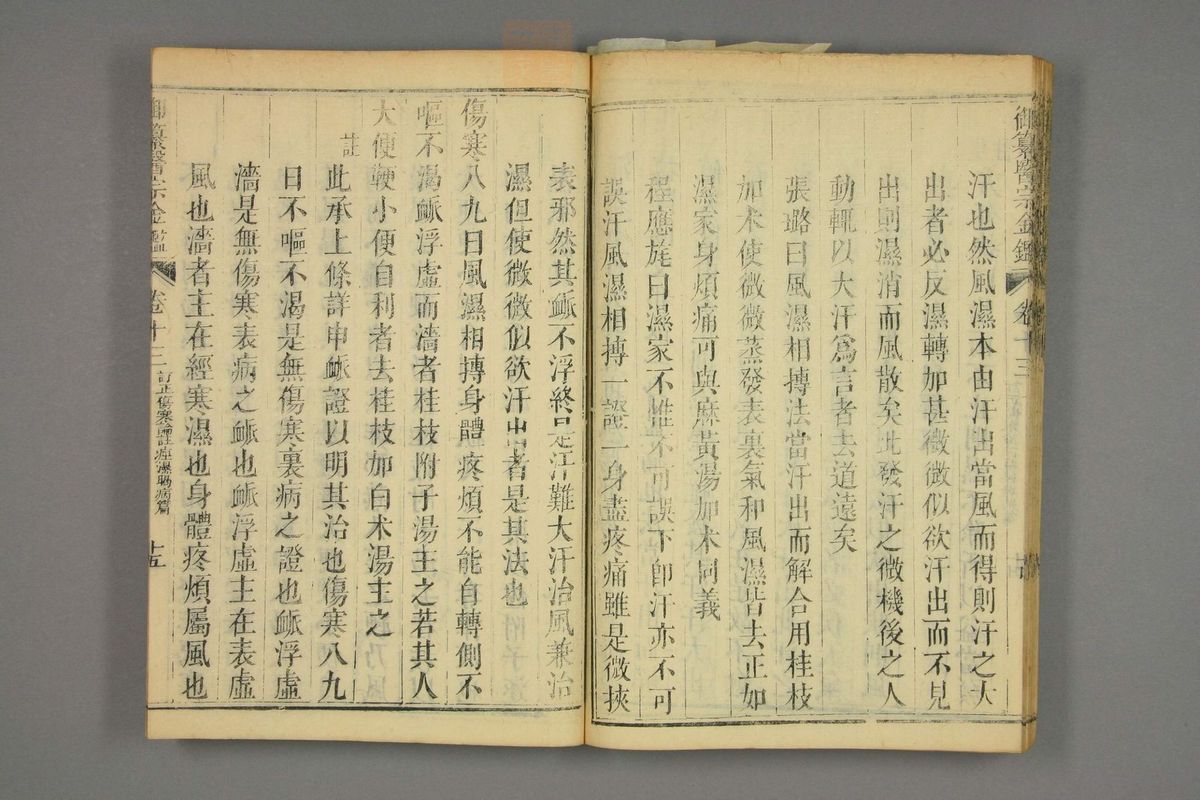 御纂醫宗金鑑 卷十三
汗也然風濕本由汗出當風而得則汗之大
出者必反濕轉加甚微微似欲汗出而不見
出則濕消而風散矣此發汗之微機後之人
動輒以大汗爲言者去道遠矣
張璐曰風濕相摶法當汗出而解合用桂枝
加朮使微微蒸發表裏氣和風濕皆去正如
濕家身煩痛可與麻黃湯加朮同義
程應旄曰濕家不惟不可誤下卽汗亦不可
誤汗風濕相摶一證一身盡疼痛雖是微挾
表邪然其脈不浮終是汗難大汗治風兼治
濕但使微微似欲汗出者是其法也
傷寒八九日風濕相摶身體疼煩不能自轉側不
嘔不渴脈浮虛而濇者桂枝附子湯主之若其人
大便鞕小便自利者去桂枝加白朮湯主之
註
此承上條詳申脈證以明其治也傷寒八九
日不嘔不渴是無傷寒裏病之證也脈浮虛
濇是無傷寒表病之脈也脈浮虛主在表虛
風也濇者主在經寒濕也身體疼煩屬風也
御纂醫宗金鑑 卷十三 訂正傷寒論註痙濕暍病篇 十五